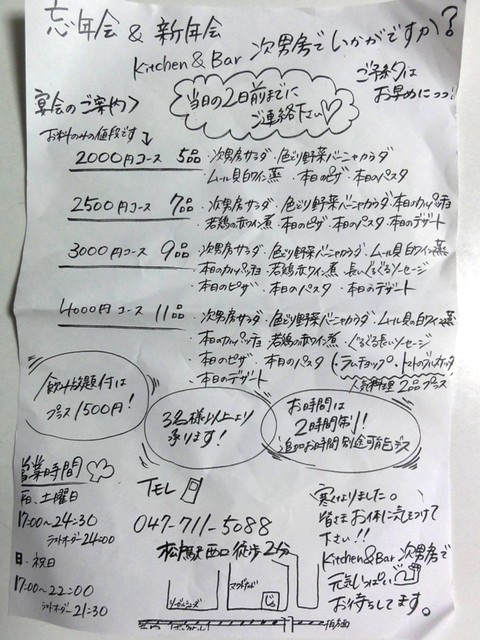 忘年会 & 新年会
Kitchen & Bar 次男房でいかがですか?
ご予約は
お早めにっっ!
宴会のご案内>
当日の2日前までに
ご連絡下さい♡
お料理のみの値段です
2000円コース 5品 ・次男房サラダ ・色どり野菜バーニャカウダ
・ムール貝白ワイン蒸 ・本日のピザ ・本日のパスタ
2500円コース 7品 ・次男房サラダ ・色どり野菜バーニャカウダ ・本日のカルパッチョ
・若鶏の赤ワイン煮 ・本日のピザ ・本日のパスタ ・本日のデザート
3000円コース 9品 ・次男房サラダ ・色どり野菜バーニャカウダ ・ムール貝白ワイン蒸
・本日のカルパッチョ ・若鶏赤ワイン煮 ・長いぐるぐるソーセージ
・本日のピザ ・本日のパスタ ・本日のデザート
4000円コース 11品 ・次男房サラダ ・色どり野菜バーニャカウダ ・ムール貝の白ワイン蒸
・本日のカルパッチョ ・若鶏赤ワイン煮 ・ぐるぐる長いソーセージ
・本日のピザ ・本日のパスタ (・ラムチョップ ・トマトブルスケッタ
・本日のデザート 人気料理2品プラス
飲み放題付は
プラス1500円!
3名様以上より
承ります!
お時間は
2時間制!
営業時間
月〜土曜日
17:00〜24:30
ラストオーダー24:00
日・祝日
17:00〜22:00
ラストオーダー21:30
TEL
047-711-5088
松戸駅西口徒歩2分
マクドナルド
寒くなりました。
皆さまお体に気をつけて
下さい!!
Kitchen&Bar 次男房で
元気いっぱい
お待ちしてます。